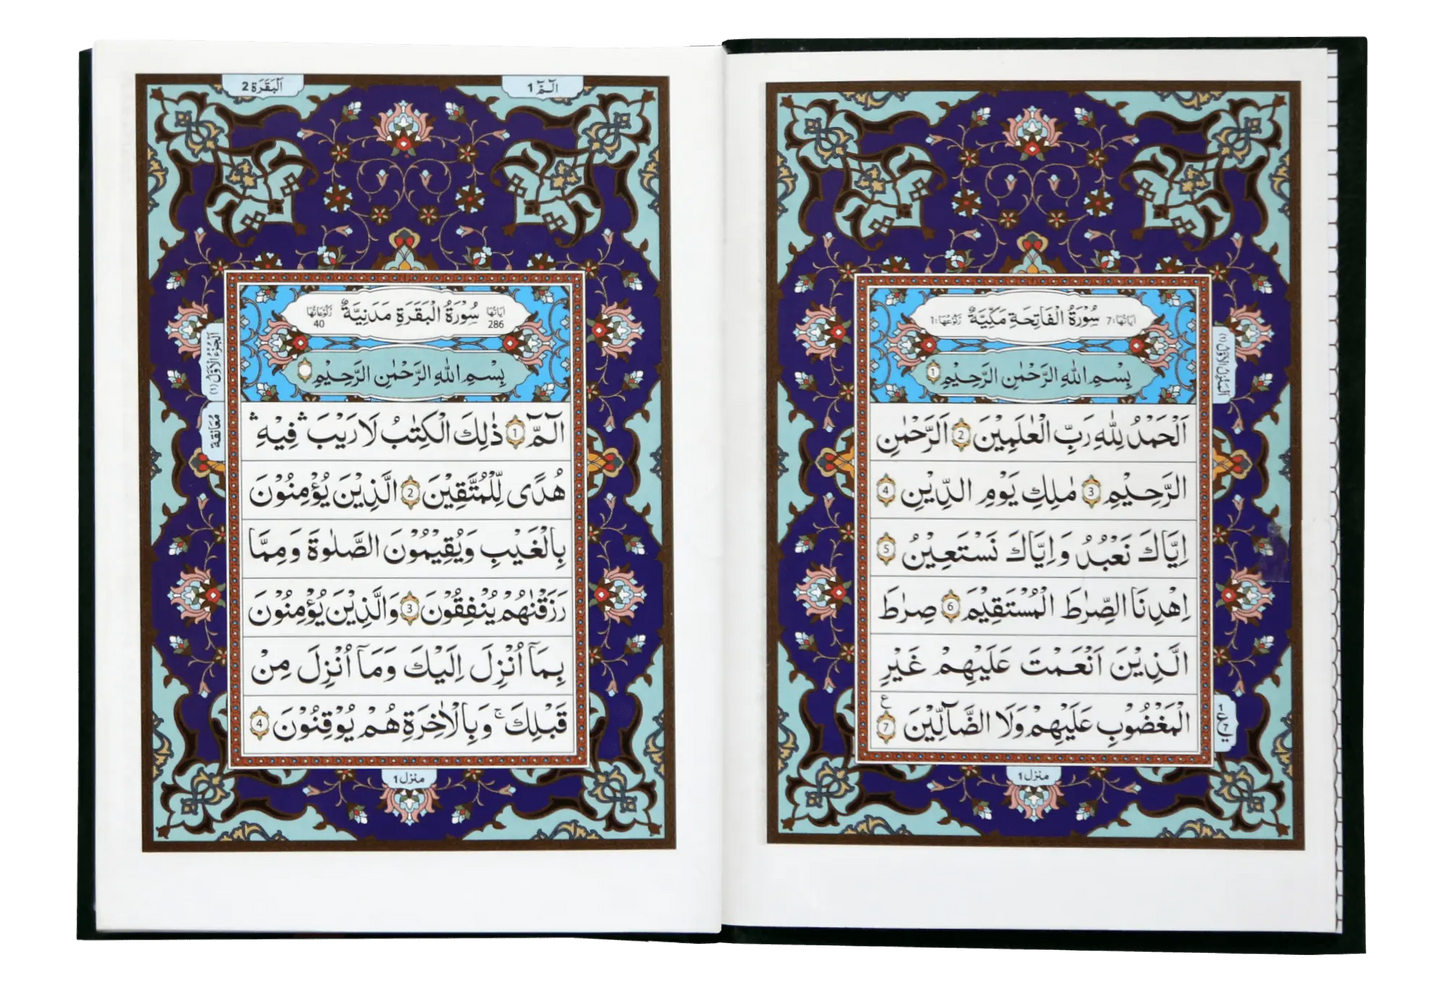 سُوْرَةُ الْفَاتِحَةِ مَكِّيَّةٌ
اٰيَاتُهَا: 7
رُكُوْعُهَا: 1
بِسْمِ اللّٰهِ الرَّحْمٰنِ الرَّحِيْمِ 1
اَلْحَمْدُ لِلّٰهِ رَبِّ الْعٰلَمِيْنَ 2 الرَّحْمٰنِ
الرَّحِيْمِ 3 مٰلِكِ يَوْمِ الدِّيْنِ 4
اِيَّاكَ نَعْبُدُ وَاِيَّاكَ نَسْتَعِيْنُ 5
اِهْدِنَا الصِّرَاطَ الْمُسْتَقِيْمَ 6 صِرَاطَ
الَّذِيْنَ اَنْعَمْتَ عَلَيْهِمْ غَيْرِ
الْمَغْضُوْبِ عَلَيْهِمْ وَلَا الضَّآلِّيْنَ 7
ع
1
ع
7
منزل 1
الٓمّٓ 1
اَلْبَقَرَة 2
سُوْرَةُ الْبَقَرَةِ مَدَنِيَّةٌ
اٰيَاتُهَا 286
رُكُوْعَاتُهَا 40
بِسْمِ اللّٰهِ الرَّحْمٰنِ الرَّحِيْمِ
الٓمّٓ 1 ذٰلِكَ الْكِتٰبُ لَا رَيْبَ ۛ فِيْهِ ۛ
هُدًى لِّلْمُتَّقِيْنَ 2 الَّذِيْنَ يُؤْمِنُوْنَ
بِالْغَيْبِ وَيُقِيْمُوْنَ الصَّلٰوةَ وَمِمَّا
رَزَقْنٰهُمْ يُنْفِقُوْنَ 3 وَالَّذِيْنَ يُؤْمِنُوْنَ
بِمَآ اُنْزِلَ اِلَيْكَ وَمَآ اُنْزِلَ مِنْ
قَبْلِكَ ۚ وَبِالْاٰخِرَةِ هُمْ يُوْقِنُوْنَ 4
اَلْجُزْءُ الْاَوَّلُ (1)
مُعَانَقَة
منزل 1